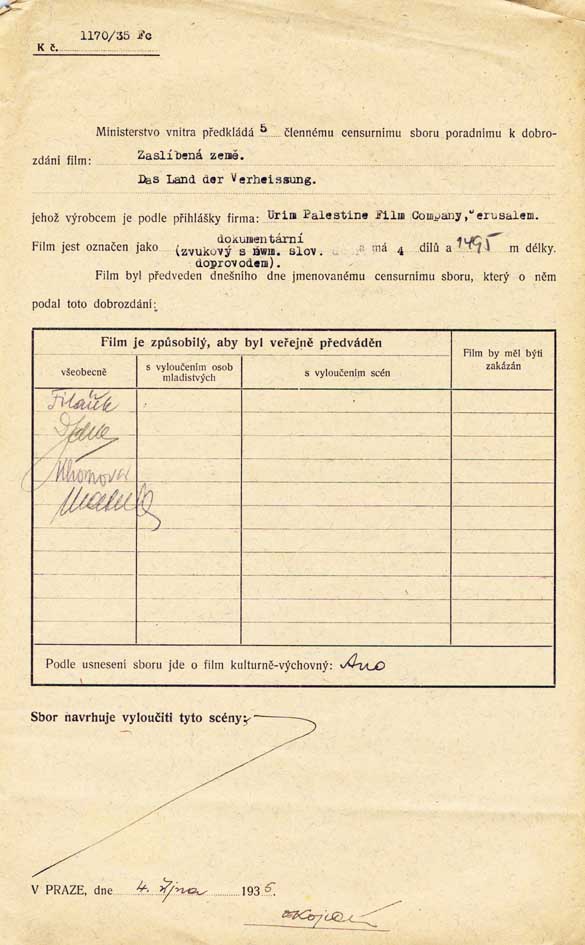 K č. 1170/35 Fc
Ministerstvo vnitra předkládá 5 člennému censurnimu sboru poradnimu k dobro-
zdání film: Zaslíbená země.
Das Land der Verheissung.
jehož výrobcem je podle přihlášky firma: Urim Palestine Film Company, Jerusalem.
dokumentární
Film jest označen jako (zvukový s něm. slov. a má 4 dílů a 1495 m délky.
doprovodem).
Film byl předveden dnešního dne jmenovanému censurnimu sboru, který o něm
podal toto dobrozdání:
Film je způsobilý, aby byl veřejně předváděn
Film by měl býti
zakázán
všeobecně
s vyloučením osob
mladistvých
s vyloučením scén
Podle usnesení sboru jde o film kulturně-výchovný: Ano
Sbor navrhuje vyloučiti tyto scény:
V PRAZE, dne 4. října 1935.